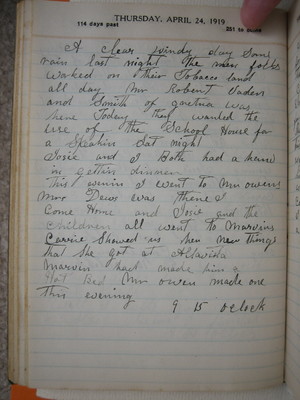 THURSDAY, APRIL 24, 1919
114 days past
251 to come
A Clear windy day Some
rain last night The men folks
worked on their Tobacco land
all day Mr Robert Vaden
and Smith of gretna was
here Today they wanted the
use of the School House for
a Speakin Sat night
Josie and I Both had a hand
in gettin dinner
This evenin I went to Mr owens
Mrs Dews was there I
Come Home and Josie and the
Children all went to Marvins
Carrie Showed us her New things
that She got at Altavista
Marvin had made him a
Hot Bed Mr owen made one
This evening
9 15 oclock